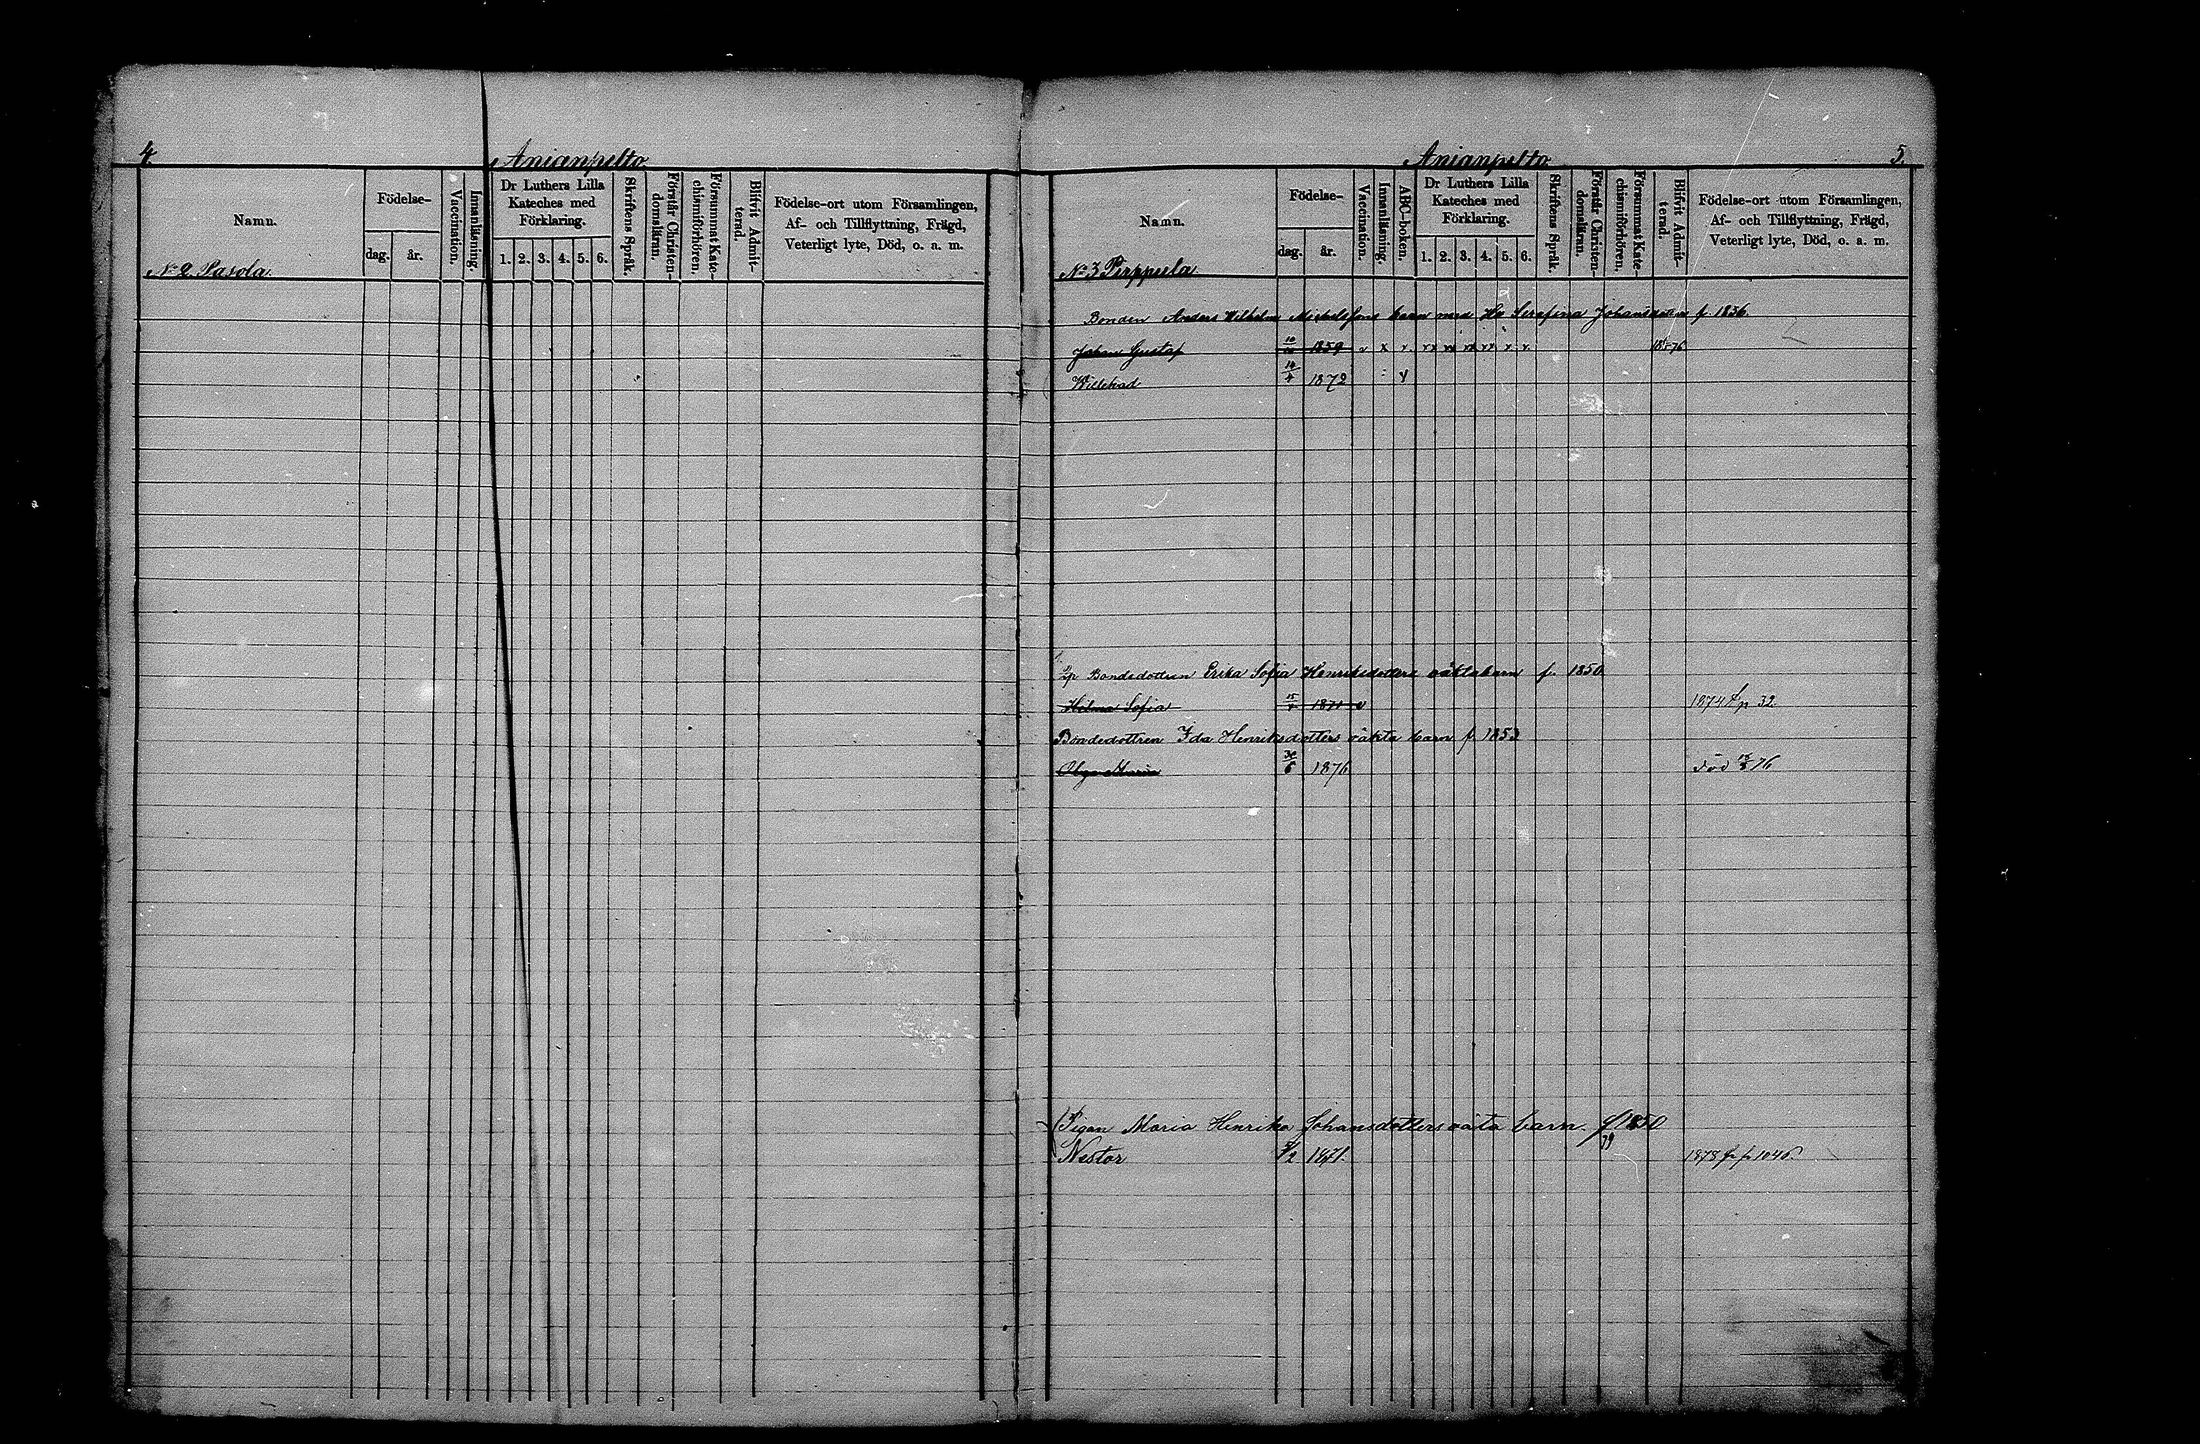 4.
Anianpelto
Namn.
Födelse-
dag.
år.
Vaccination.
Innanläsning.
Dr Luthers Lilla
Kateches med
Förklaring.
1. 2. 3. 4. 5. 6.
Skriftens Språk.
Förstår Christen-
domsläran.
Försummat Kate-
chismiförhören.
Blifvit Admit-
terad.
Födelse-ort utom Församlingen,
Af- och Tillflyttning, Frägd,
Veterligt lyte, Död, o. a. m.
No 2 Pasola.
Anianpelto
5.
Namn.
Födelse-
dag.
år.
Vaccination.
Innanläsning.
ABC-boken.
Dr Luthers Lilla
Kateches med
Förklaring.
1. 2. 3. 4. 5. 6.
Skriftens Språk.
Förstår Christen-
domsläran.
Försummat Kate-
chismiförhören.
Blifvit Admit-
terad.
Födelse-ort utom Församlingen,
Af- och Tillflyttning, Frägd,
Veterligt lyte, Död, o. a. m.
No 3 Pirppula
Bonden Anders Wilhelm Mickelssons barn med Hu Serafina Johansdotter f. 1836.
Johan Gustaf 1859
Willehad 1872
Bondedottren Erika Sofia Henriksdotters oäkta barn f. 1850
Hilma Sofia 1871 1874 p 32
Bondedottren Ida Henriksdotters oäkta barn f. 1853
Olga Maria 30/6 1876 död 76
Pigan Maria Henrika Johansdotters oäta barn. f 1850
Nestor 1871. 1878 fr p 1046.